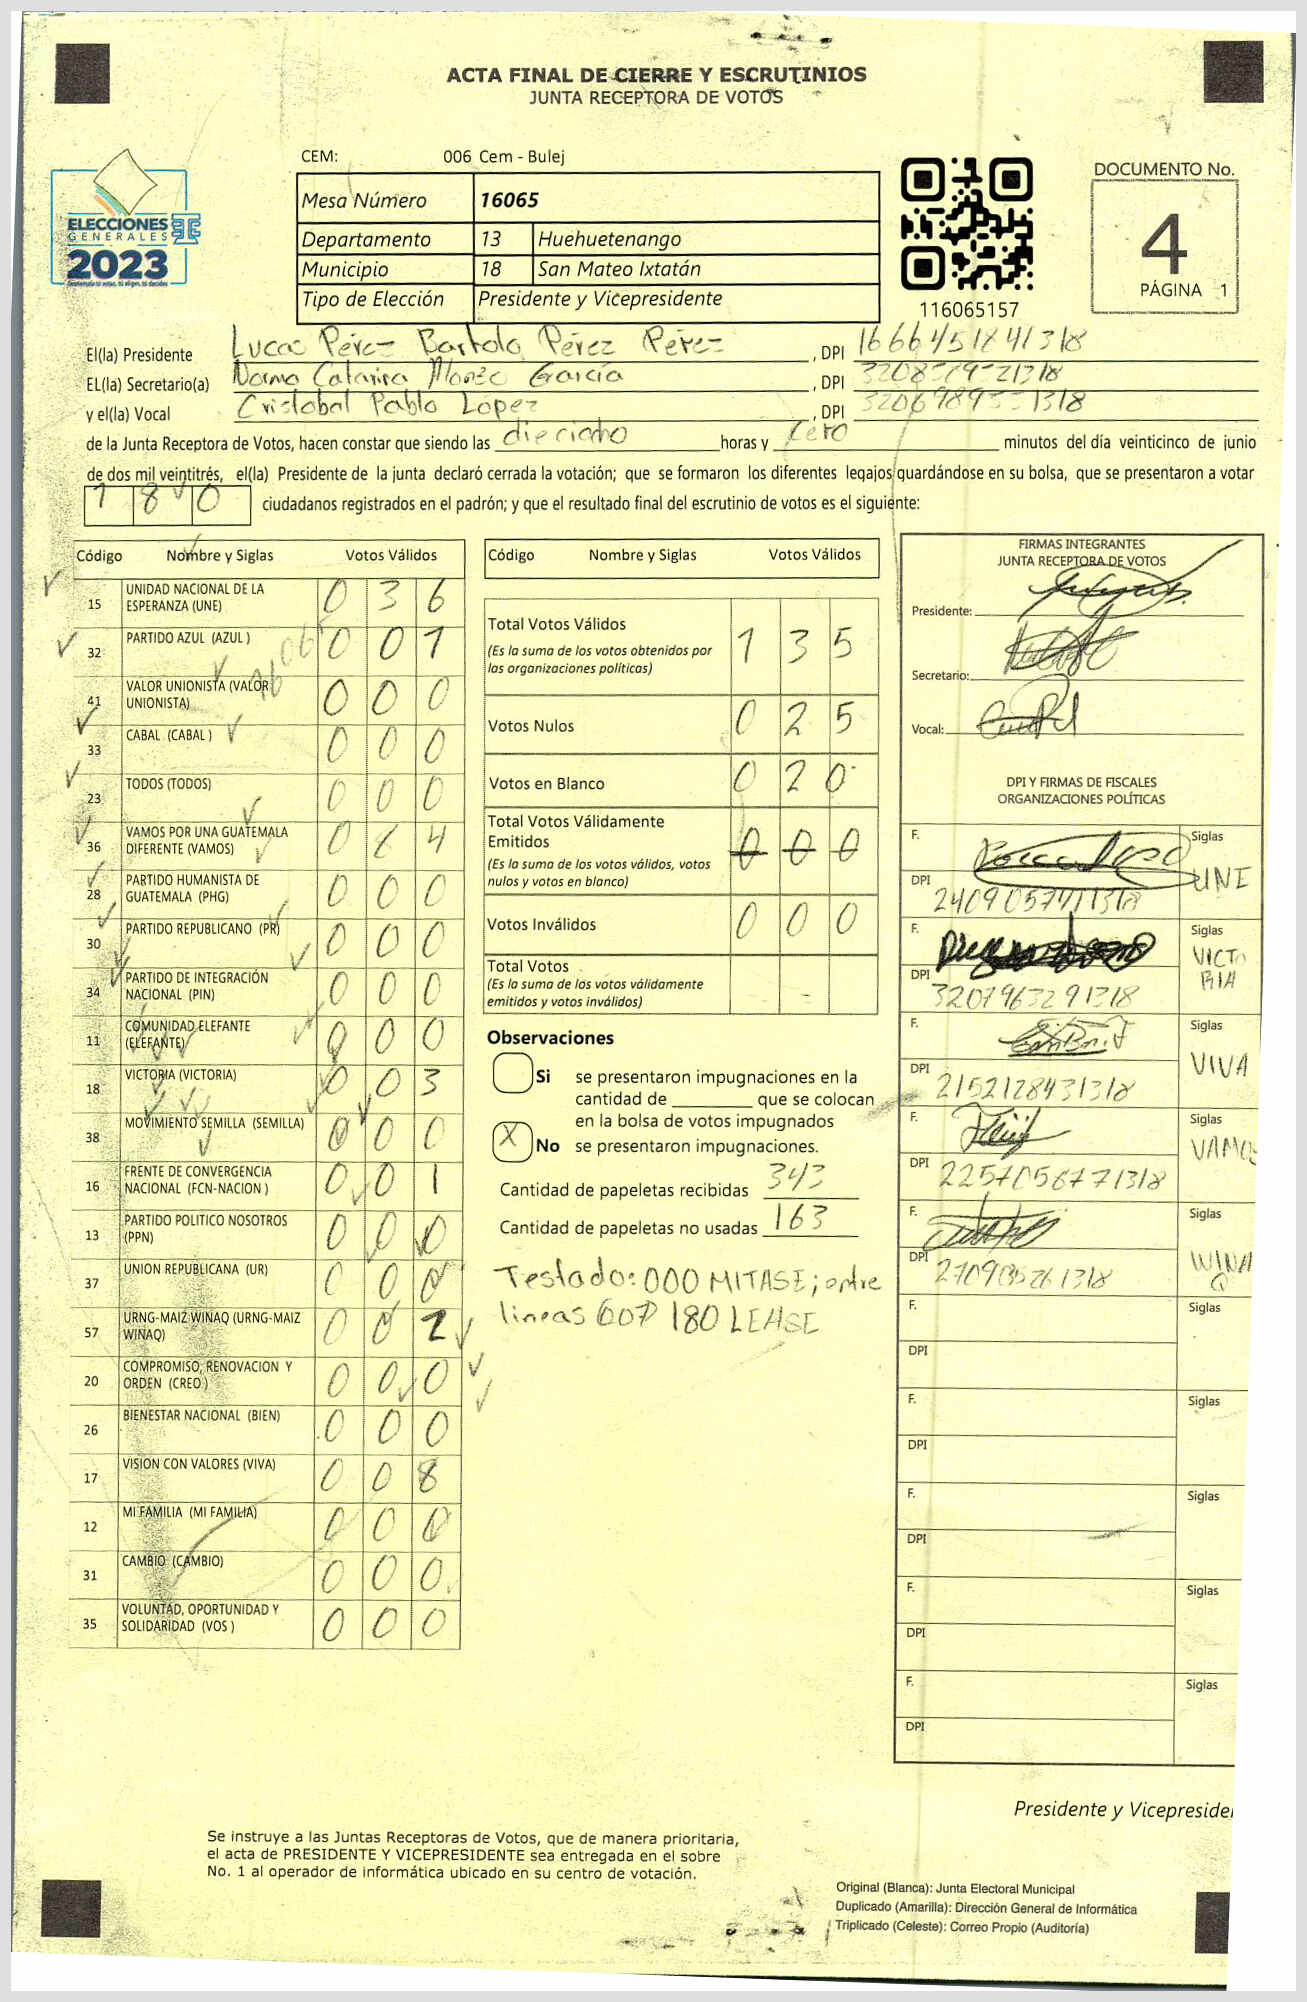 ACTA FINAL DE CIERRE Y ESCRUTINIOS
JUNTA RECEPTORA DE VOTOS
CEM: 006 Cem - Bulej
ELECCIONES
GENERALES
2023
Mesa Número 16065
Departamento 13 Huehuetenango
Municipio 18 San Mateo Ixtatán
Tipo de Elección Presidente y Vicepresidente
116065157
DOCUMENTO No.
4
PÁGINA 1
El(la) Presidente Lucas Pérez Bartolo Pérez Pérez , DPI 1666451841318
EL(la) Secretario(a) Norma Catarina Alonzo García , DPI
y el(la) Vocal Cristobal Pablo López , DPI
de la Junta Receptora de Votos, hacen constar que siendo las dieciocho horas y cero minutos del día veinticinco de junio
de dos mil veintitrés, el(la) Presidente de la junta declaró cerrada la votación; que se formaron los diferentes legajos guardándose en su bolsa, que se presentaron a votar
180 ciudadanos registrados en el padrón; y que el resultado final del escrutinio de votos es el siguiente:
Código Nombre y Siglas Votos Válidos
15 UNIDAD NACIONAL DE LA ESPERANZA (UNE) 0 3 6
32 PARTIDO AZUL (AZUL ) 0 0 1
16065
41 VALOR UNIONISTA (VALOR UNIONISTA) 0 0 0
33 CABAL (CABAL ) 0 0 0
23 TODOS (TODOS) 0 0 0
36 VAMOS POR UNA GUATEMALA DIFERENTE (VAMOS) 0 8 4
28 PARTIDO HUMANISTA DE GUATEMALA (PHG) 0 0 0
30 PARTIDO REPUBLICANO (PR) 0 0 0
34 PARTIDO DE INTEGRACIÓN NACIONAL (PIN) 0 0 0
11 COMUNIDAD ELEFANTE (ELEFANTE) 0 0 0
18 VICTORIA (VICTORIA) 0 0 3
38 MOVIMIENTO SEMILLA (SEMILLA) 0 0 0
16 FRENTE DE CONVERGENCIA NACIONAL (FCN-NACION ) 0 0 1
13 PARTIDO POLITICO NOSOTROS (PPN) 0 0 0
37 UNION REPUBLICANA (UR) 0 0 0
57 URNG-MAIZ WINAQ (URNG-MAIZ WINAQ) 0 0 2
20 COMPROMISO, RENOVACION Y ORDEN (CREO ) 0 0 0
26 BIENESTAR NACIONAL (BIEN) 0 0 0
17 VISION CON VALORES (VIVA) 0 0 8
12 MI FAMILIA (MI FAMILIA) 0 0 0
31 CAMBIO (CAMBIO) 0 0 0
35 VOLUNTAD, OPORTUNIDAD Y SOLIDARIDAD (VOS ) 0 0 0
Código Nombre y Siglas Votos Válidos
Total Votos Válidos 1 3 5
(Es la suma de los votos obtenidos por
las organizaciones políticas)
Votos Nulos 0 2 5
Votos en Blanco 0 2 0
Total Votos Válidamente
Emitidos 0 0 0
(Es la suma de los votos válidos, votos
nulos y votos en blanco)
Votos Inválidos 0 0 0
Total Votos
(Es la suma de los votos válidamente
emitidos y votos inválidos)
Observaciones
Si se presentaron impugnaciones en la
cantidad de ________ que se colocan
en la bolsa de votos impugnados
X No se presentaron impugnaciones.
Cantidad de papeletas recibidas 343
Cantidad de papeletas no usadas 163
Testado: 000 MITASE; entre
lineas 180 LEASE
FIRMAS INTEGRANTES
JUNTA RECEPTORA DE VOTOS
Presidente:
Secretario:
Vocal:
DPI Y FIRMAS DE FISCALES
ORGANIZACIONES POLÍTICAS
F. Siglas UNE
DPI 2409057711318
F. Siglas VICTO
RIA
DPI 3207963291318
F. Siglas VIVA
DPI 2152128431318
F. Siglas VAMOS
DPI 2257056771318
F. Siglas WINA
Q
DPI
F. Siglas
DPI
F. Siglas
DPI
F. Siglas
DPI
F. Siglas
DPI
F. Siglas
DPI
Presidente y Vicepreside
Se instruye a las Juntas Receptoras de Votos, que de manera prioritaria,
el acta de PRESIDENTE Y VICEPRESIDENTE sea entregada en el sobre
No. 1 al operador de informática ubicado en su centro de votación.
Original (Blanca): Junta Electoral Municipal
Duplicado (Amarilla): Dirección General de Informática
Triplicado (Celeste): Correo Propio (Auditoría)